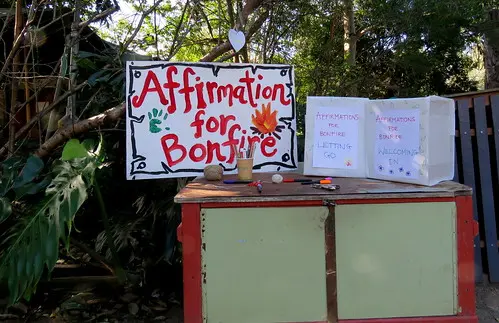 Affirmation
for
Bonfire
AFFIRMATIONS
FOR
BONFIRE
LETTING
GO
AFFIRMATIONS
FOR
BONFIRE
WELCOMING
IN